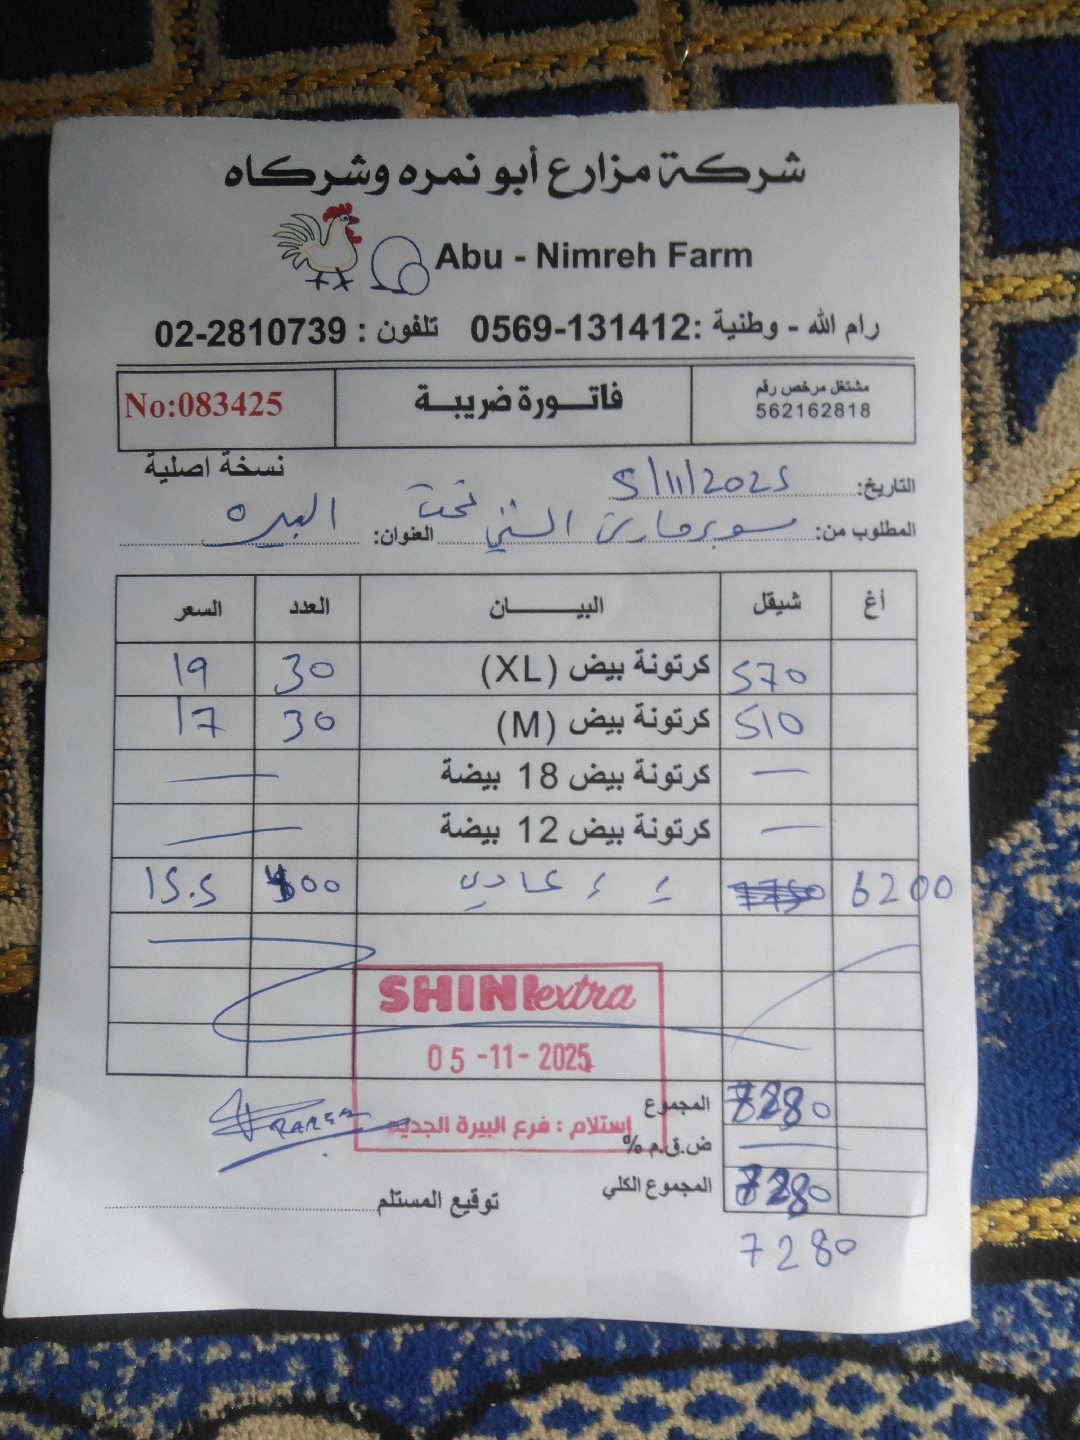 شركة مزارع أبو نمره وشركاه
Abu - Nimreh Farm
رام الله - وطنية :0569-131412 تلفون : 02-2810739
مشتغل مرخص رقم
562162818
فاتـورة ضريبة
No:083425
نسخة اصلية
التاريخ: 5/11/2025
المطلوب من: سوبرماركت الشني تحت العنوان: البيره
أغ شيقل البيـــان العدد السعر
570 كرتونة بيض (XL) 30 19
510 كرتونة بيض (M) 30 17
— كرتونة بيض 18 بيضة —
— كرتونة بيض 12 بيضة —
6200 = = عادي 400 15.5
SHINI extra
05-11-2025
إستلام : فرع البيرة الجديد
المجموع 7280
ض.ق.م %
المجموع الكلي 7280
7280
توقيع المستلم